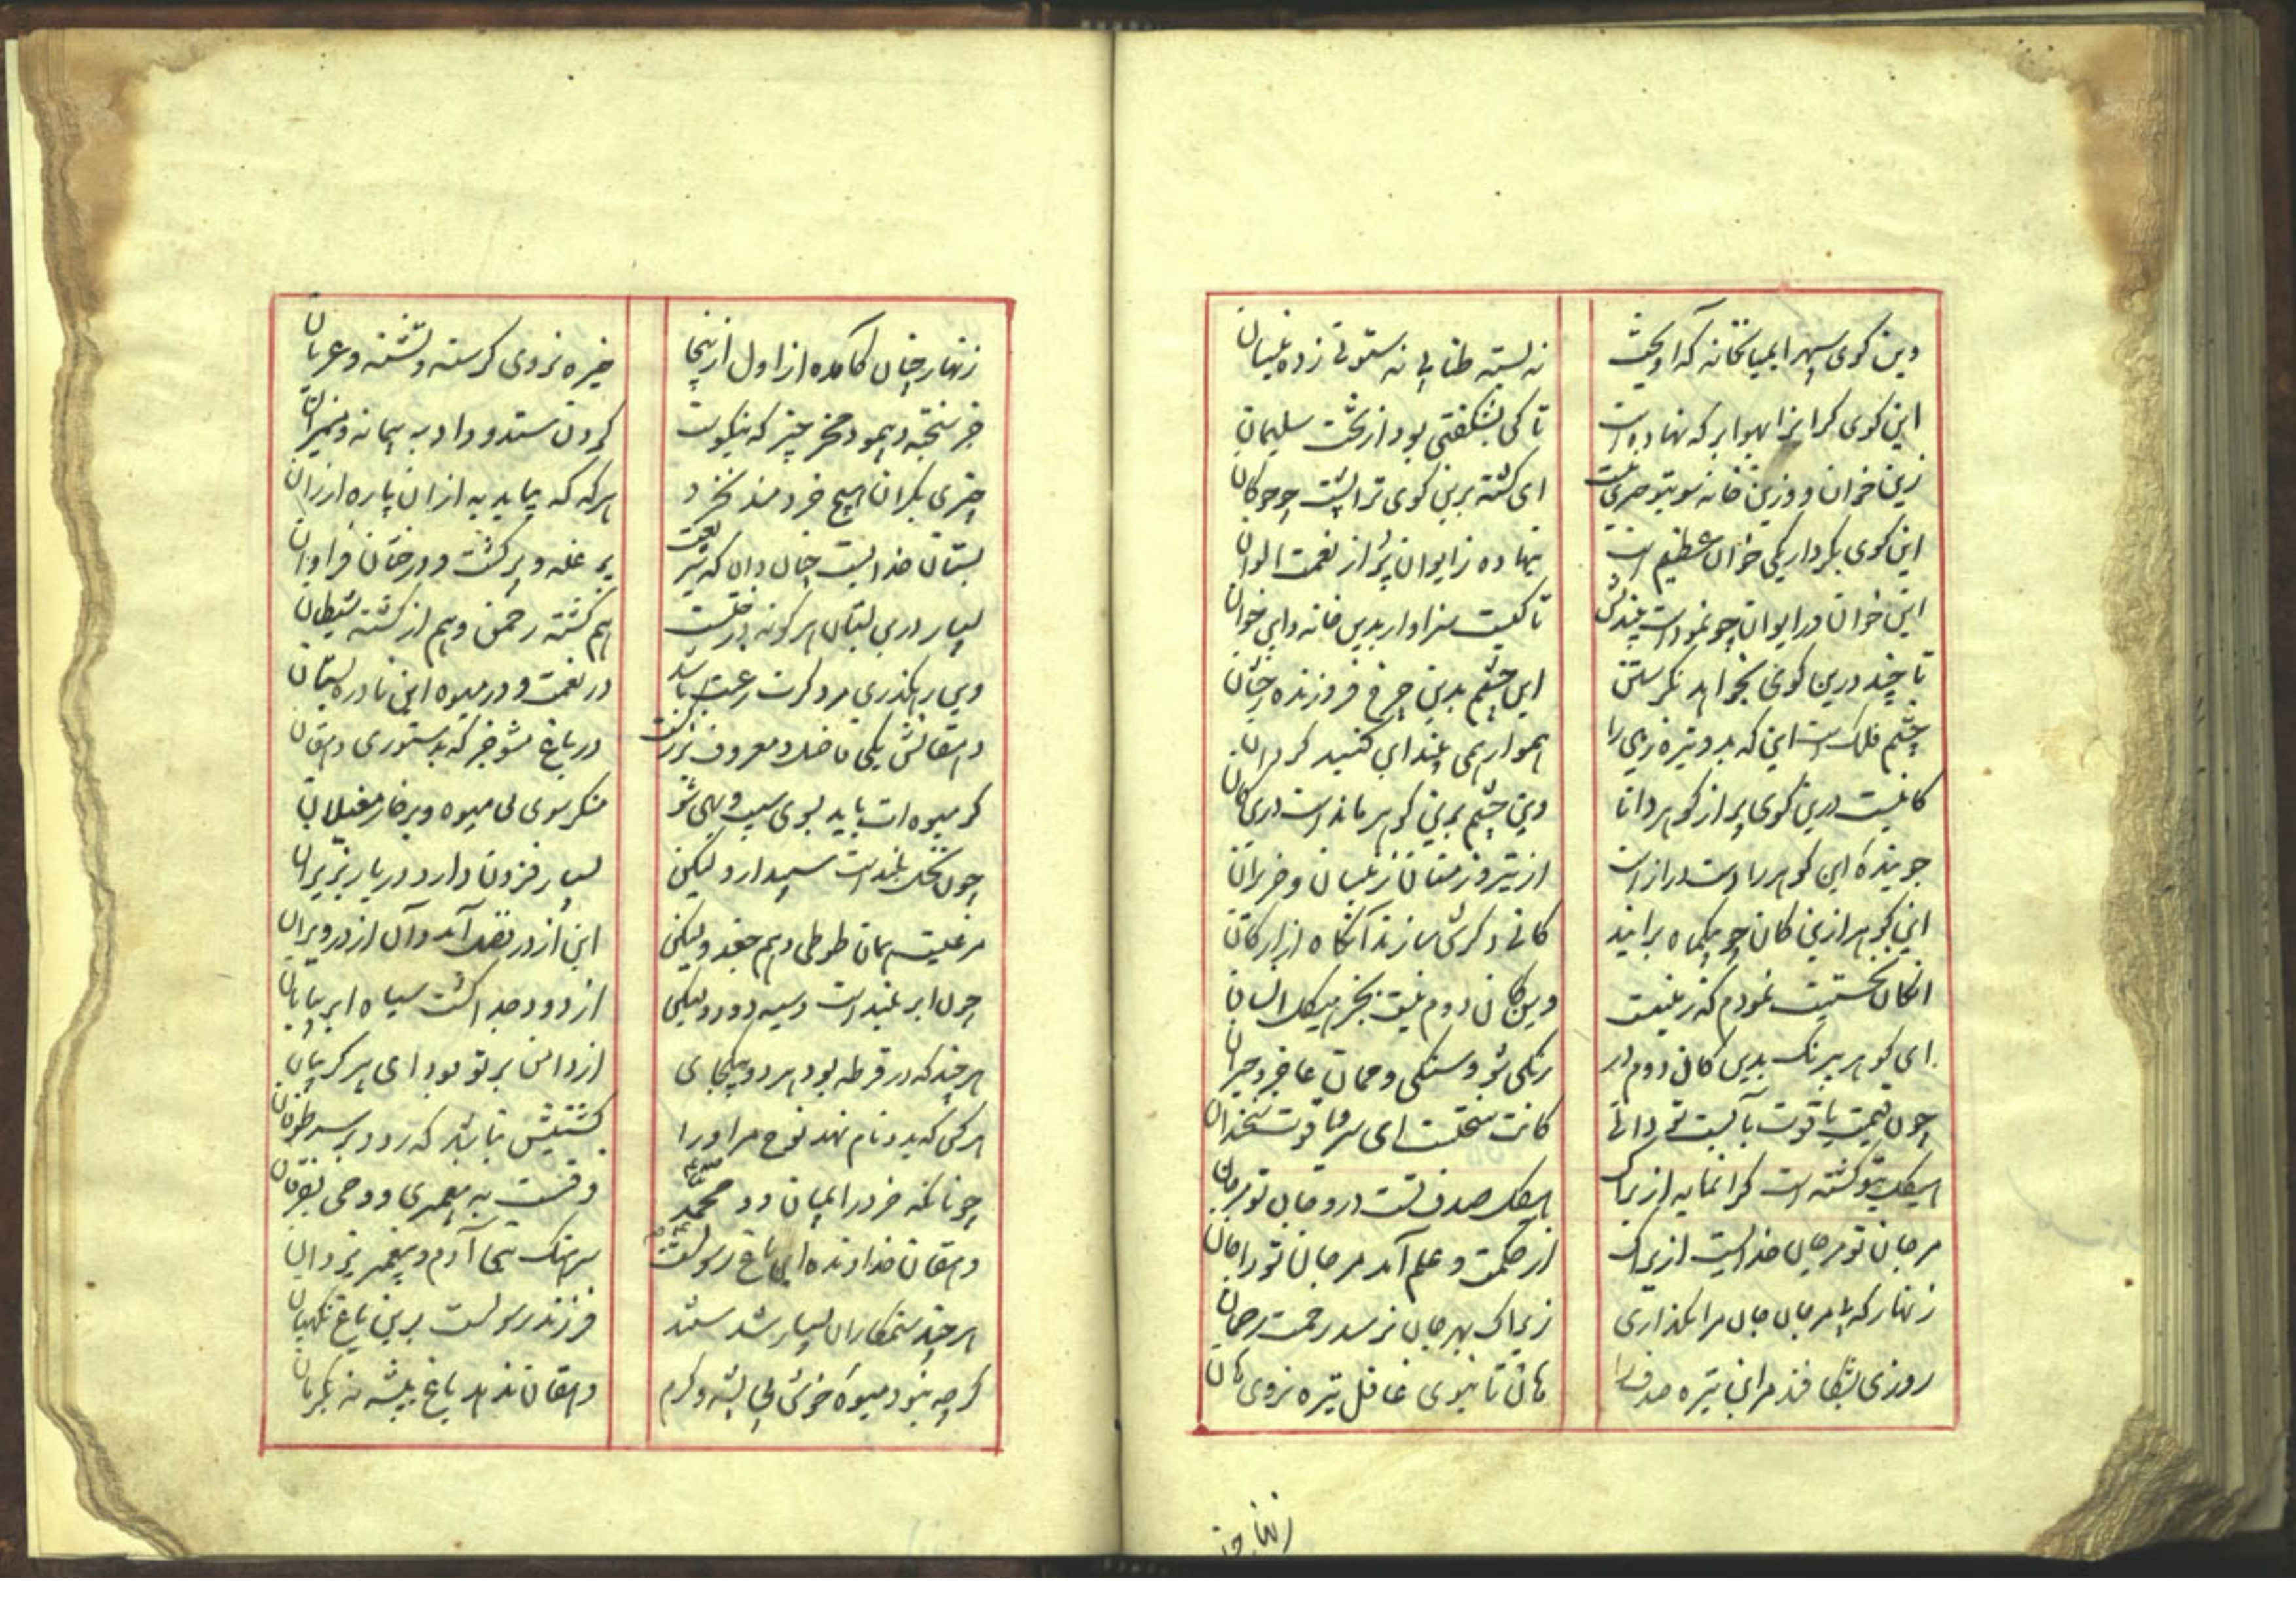 وین کوی سپهر ای میانخانه که آویخت
نه بسته طنابی نه ستونی زده بنیان
این کوی کرا بر هوا بر که نهاده است
تا کی بشکفتی بود از تخت سلیمان
زین خوان و وزین خانه تو
ای کشته برین کوی ترا پشت چو چوکان
این کوی بکردار یکی خوان عظیم است
بنهاده ز ایوان پر از نعمت الوان
این خوان در ایوان چو نموده است
تا کیست سزاوار بدین خانه و این خوان
تا چند درین کوی بخواهد نکرستن
این چشم بدین چرخ فروزنده رخشان
چشم فلک است این که بدو تیره زمی را
هموار همی بیند این کنبد کردان
کانیست درین کوی پر از کوهر دانا
وین چشم برین کوهر مانده است درین کان
جوینده این کوهر را دست دراز است
از تیر و زمستان ز نیسان و حزیران
این کوهر ازین کان چو بیکماه برآید
کانی دکرش سازند آنگاه از ارکان
آنکان نخستین نمودم که زمینست
وین کان دوم نیست بجز هیکل انسان
ای کوهر بیرنک بدین کان دوم در
رنکی شو و سنکی و ممان عاجز و حیران
چون قیمت یاقوت بآبست تو دانی
کانت سخنست ای سره قوت سخندان
هیکل بتو کشته است کرانمایه ازیراک
هیکل صدف تست درو جان تو مرجان
مرجان تو مرجان خدایست ازیراک
از حکمت و علم آمد مرجان تو را جان
زنهار که با مرجان جان مرا نکذاری
زیراک بهرجان نرسد رحمت رحمان
روزی بشکافند مر این تیره صدف را
هان تا نبوی غافل تیره نروی هان
زنهار چنان
زنهار چنان کامده از اول از اینجا
خیره نروی کرسنه و تشنه و عریان
جز سخته و پیموده مخر چیز که نیکوست
کردن ستد و داد به پیمانه و میزان
چیزی بکران هیچ خردمند نخرد
هرکه که بیابد به از ان پاره ارزان
بستان خدایست چنان دان که شریعت
پر غله و پر کشت و درختان فراوان
بسیار درین بستان هر کونه درختست
هم کشته رحمن و هم از کشته شیطان
وین بر نکذری مرد کرت رغبت باشد
در نعمت و در میوه این نادره بستان
دهقانش یکی فاضل و معروف بزرکست
در باغ مشو جز که بدستوری دهقان
کر میوه ات باید بسوی سیب و بهی شو
منکر سوی بی میوه و پر خار مغیلان
چون تنک بلند است سپیدار ولیکن
بسیار فزون دارد در بار بر ایران
مرغیست همان طوطی و هم جغد ولیکن
این از در قصر آمد و آن از در ویران
چون ابر بلند است سیه دود ولیکن
از دود جدا کشت سیاه ابر بیابان
هر چند که در قرطه بود هر دو بیکجای
از دامن برتر بود ای پیر کریبان
هر کس که بدو نام نهد نوح مر او را
کشتیش نباشد که رود بر سر طوفان
چونانکه خرد را به میان دو محمد
فرقست به پیغمبری و وحی بفرقان
دهقان خداونده این باغ رسولست
سرهنک نبی آدم و پیغمبر یزدان
هر چند ستمکاران بسیار شدستند
فرزند رسولست برین باغ نکهبان
کرچه نبود میوه خوش بی پشه و کرم
دهقان ندهد باغ به پشه نه بکرمان